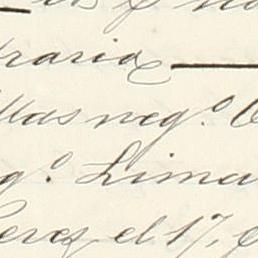 traria
llas neg.º
g.º Lima
Perez el 17,